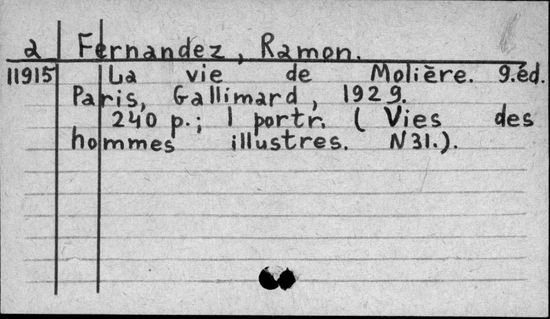 a Fernandez, Ramon.
11915 La vie de Molière. 9.éd.
Paris, Gallimard, 1929.
240 p.; 1 portr. (Vies des
hommes illustres. N31.).